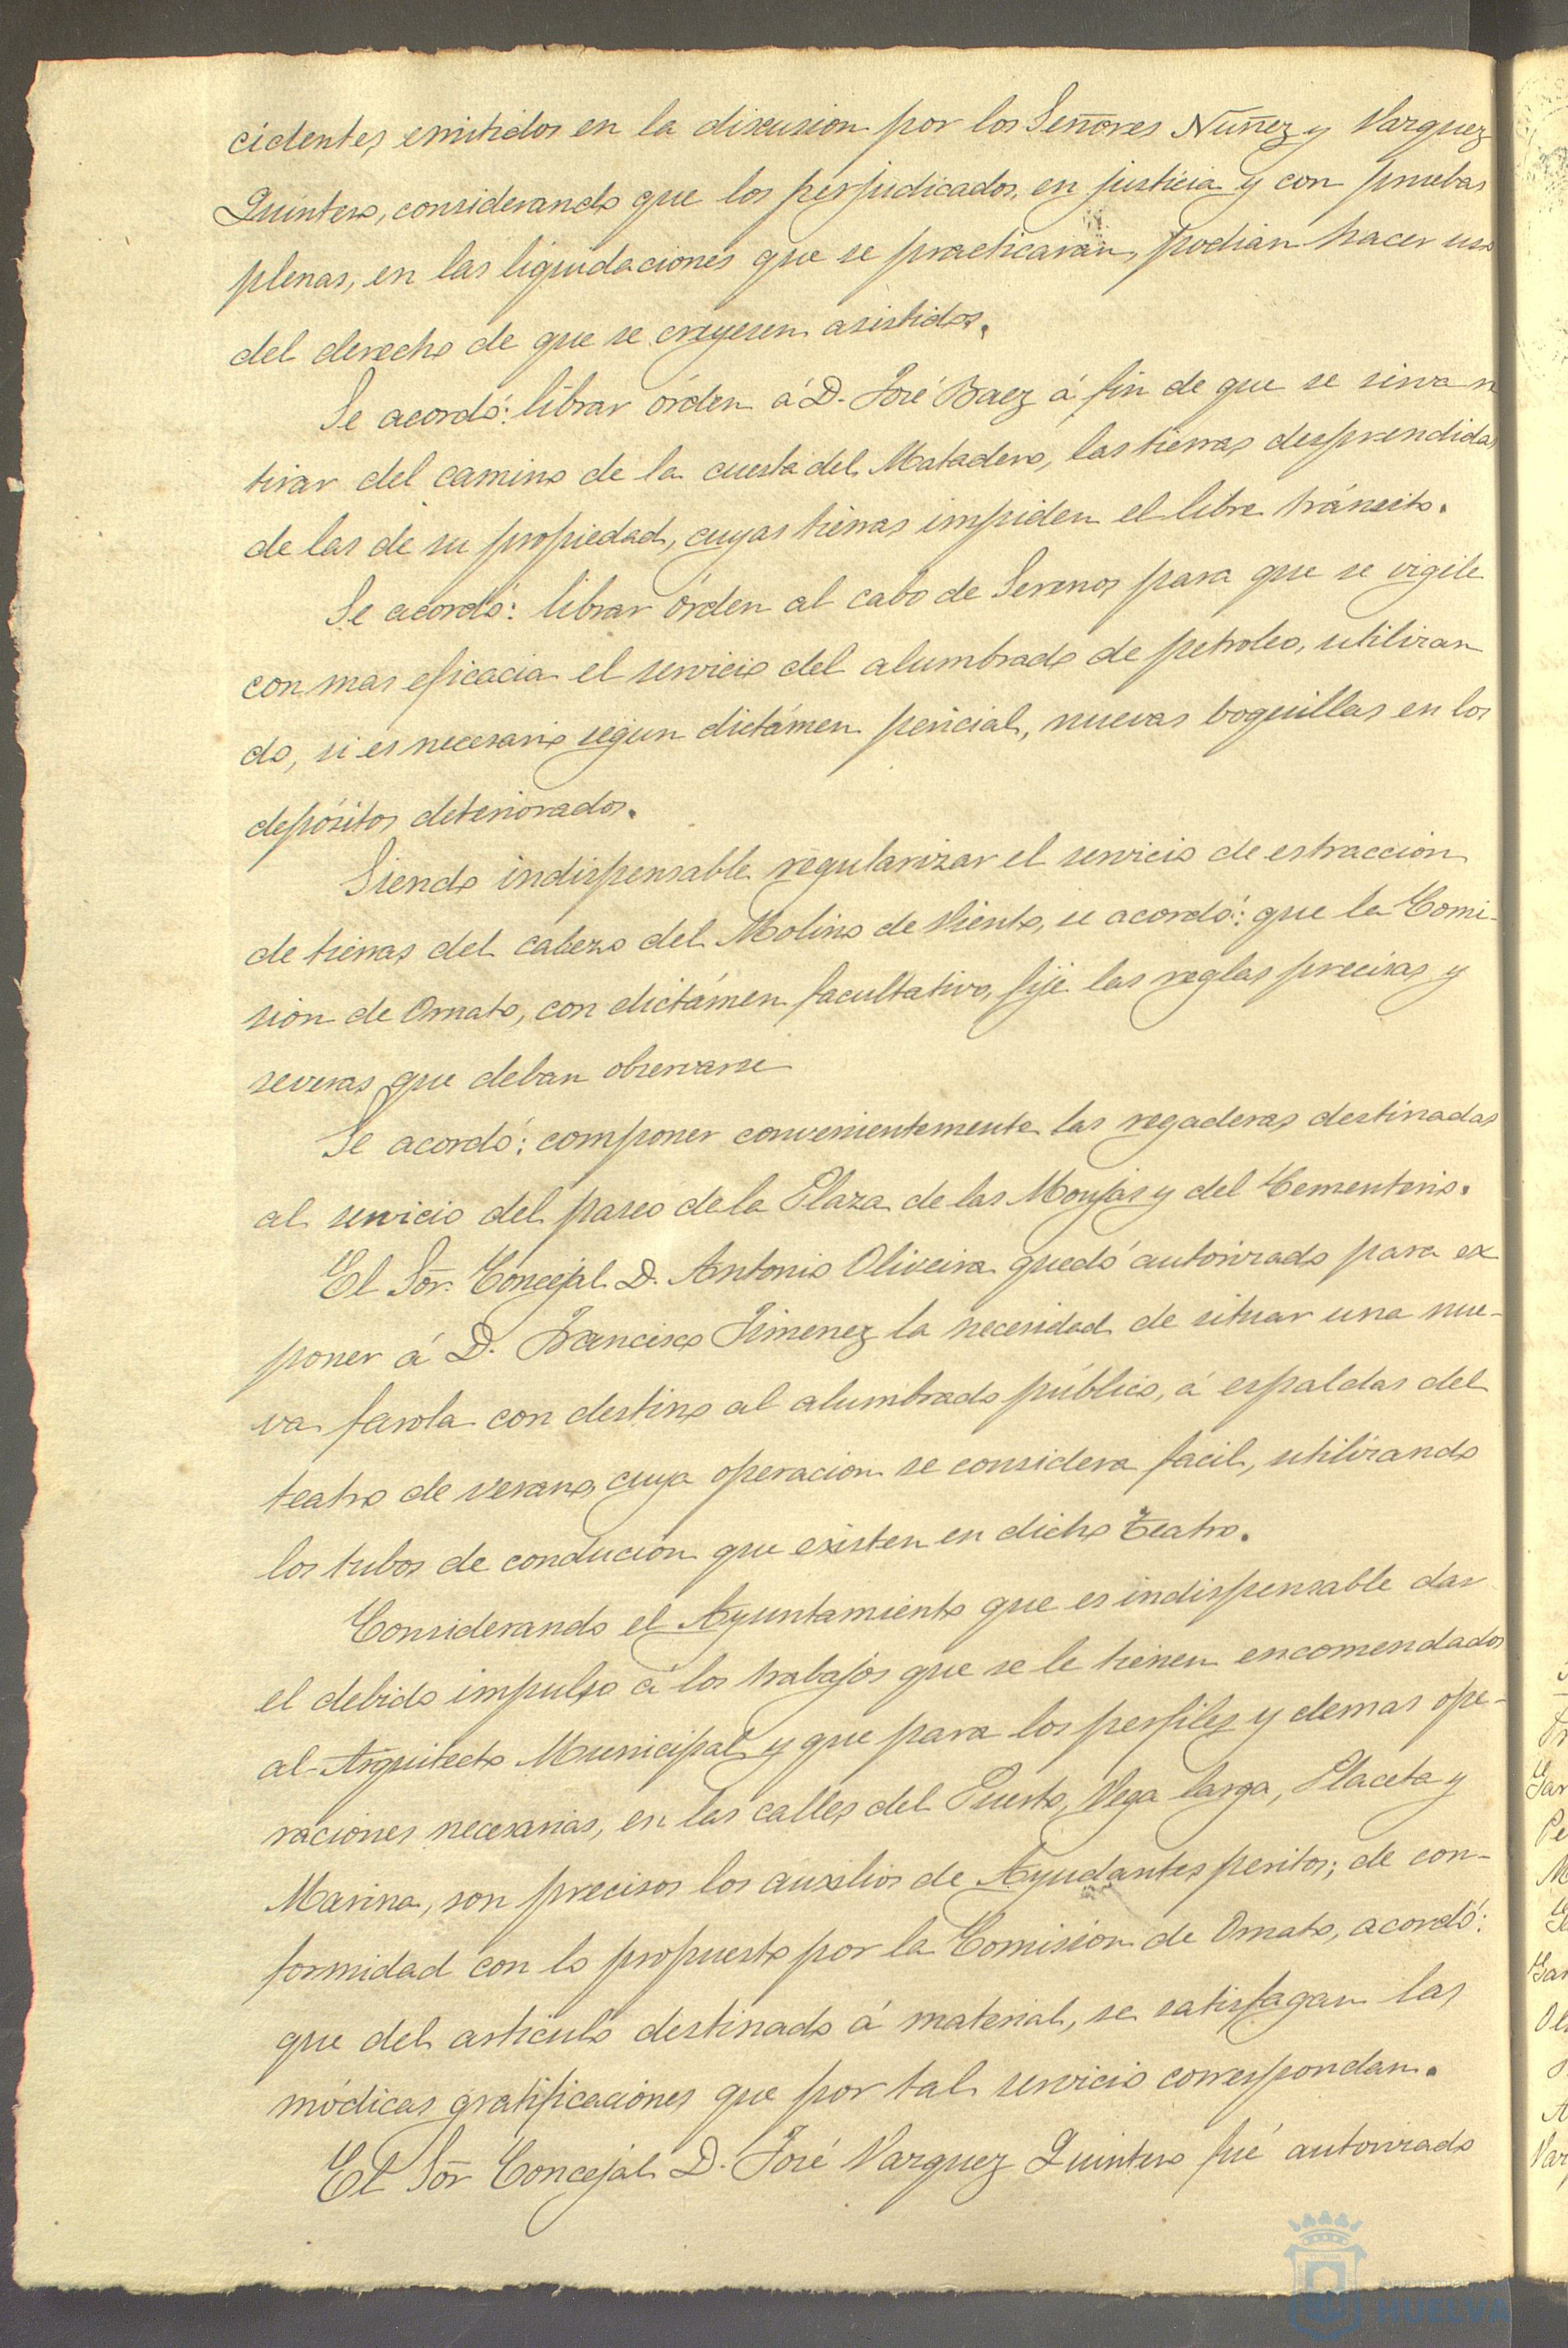 cidentes, emitidos en la discusion por los Señores Nuñez y Vazquez
Quintero, considerando que los perjudicados, en justicia y con pruebas
plenas, en las liquidaciones que se practicaran, podian hacer uso
del derecho de que se creyesen asistidos.
Se acordó: librar órden á D. José Baez á fin de que se sirva re
tirar del camino de la cuesta del Matadero, las tierras desprendidas
de las de su propiedad, cuyas tierras impiden el libre tránsito.
Se acordó: librar órden al cabo de Serenos para que se vigile
con mas eficacia el servicio del alumbrado de petroleo, utilizan
do, si es necesario segun dictámen pericial, nuevas boquillas en los
depósitos deteriorados.
Siendo indispensable regularizar el servicio de estraccion
de tierras del cabezo del Molino de Viento, se acordó: que la Comi-
sion de Ornato, con dictámen facultativo, fije las reglas precisas y
severas que deban observarse
Se acordó: componer convenientemente las regaderas destinadas
al servicio del paseo de la Plaza de las Monjas y del Cementerio.
El Sor. Concejal D. Antonio Oliveira quedó autorizado para ex
poner á D. Francisco Jimenez la necesidad de situar una nue-
va farola con destino al alumbrado público, á espaldas del
teatro de verano, cuya operacion se considera facil, utilizando
los tubos de conducion que existen en dicho Teatro.
Considerando el Ayuntamiento que es indispensable dar
el debido impulso á los trabajos que se le tienen encomendados
al Arquitecto Municipal y que para los perfiles y demas ope-
raciones necesarias, en las calles del Puerto, Vega larga, Placeta y
Marina, son precisos los auxilios de Ayudantes peritos; de con-
formidad con lo propuesto por la Comision de Ornato, acordó:
que del artículo destinado á material, se satisfagan las
módicas gratificaciones que por tal servicio correspondan.
El Sor Concejal D. José Vazquez Quintero fué autorizado
HUELVA